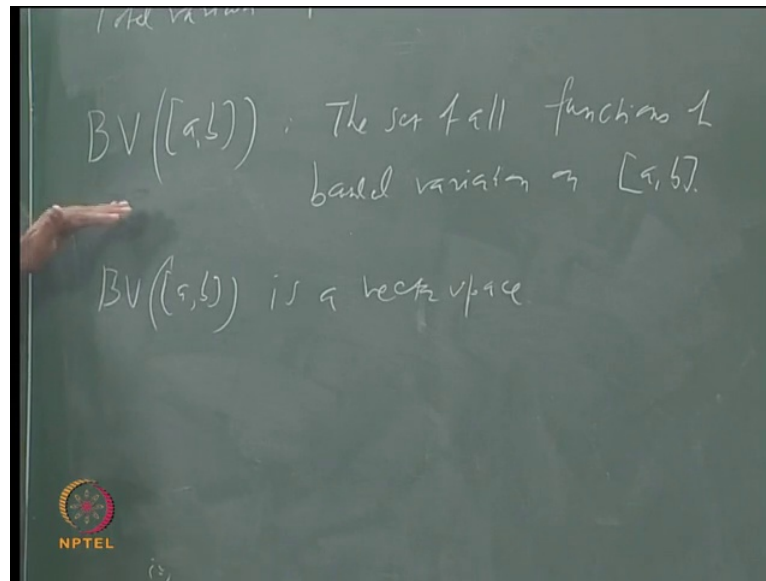 Total variation
BV([a,b]) : The set of all functions of
bounded variation on [a,b].
BV([a,b]) is a vector space
NPTEL